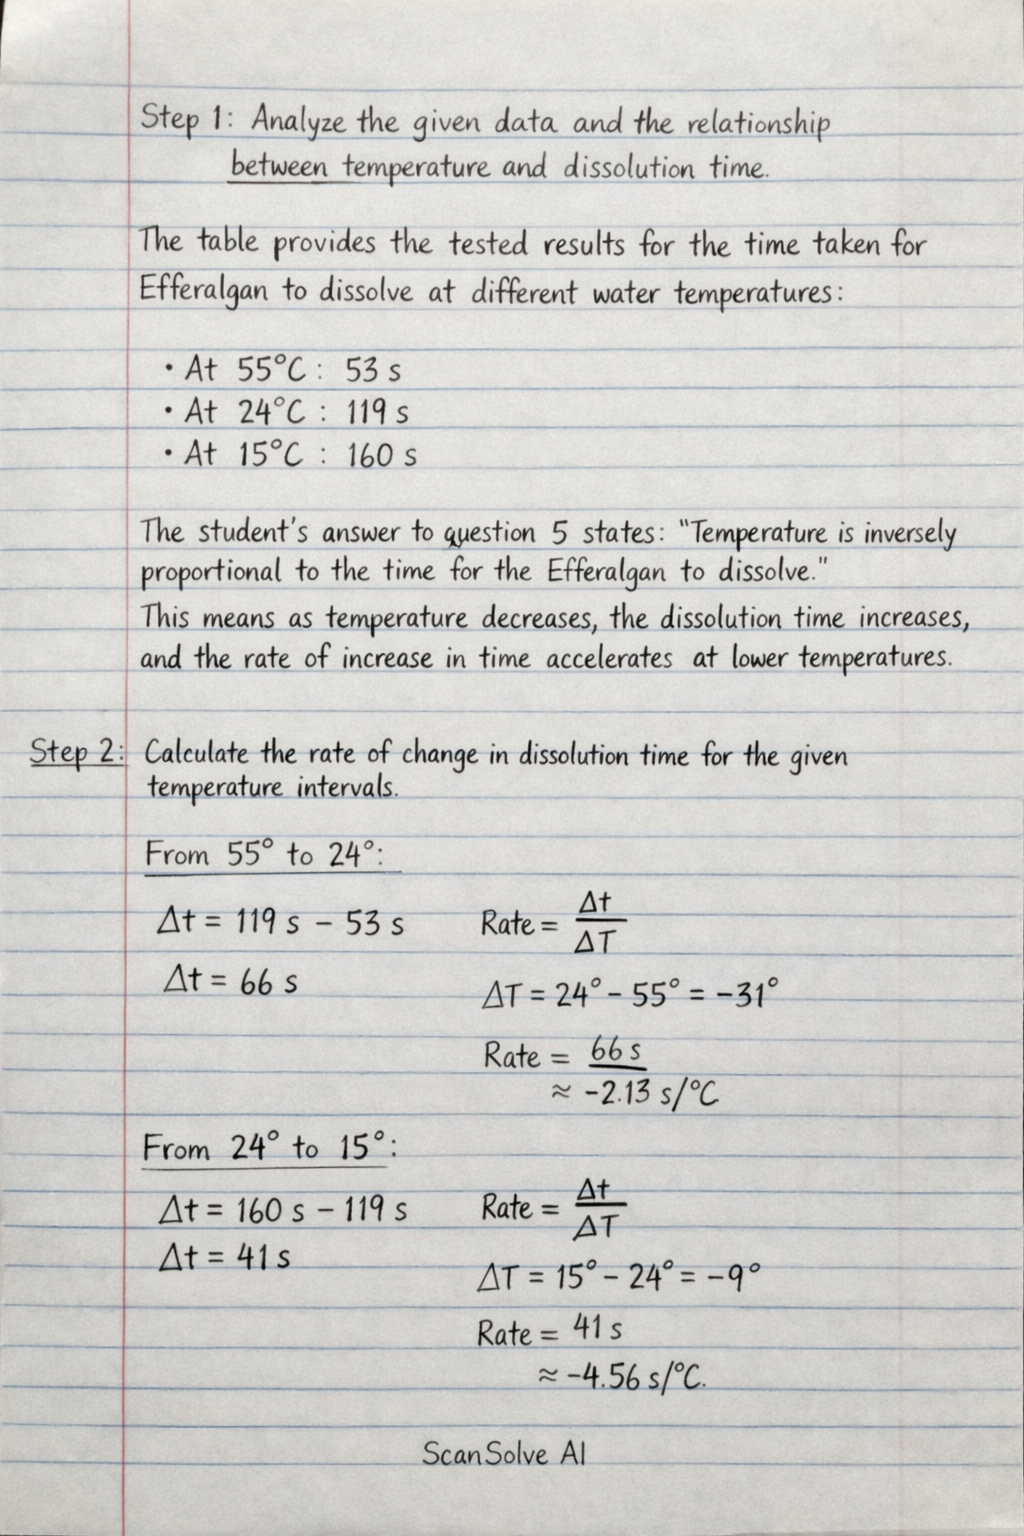 Step 1: Analyze the given data and the relationship
between temperature and dissolution time.
The table provides the tested results for the time taken for
Efferalgan to dissolve at different water temperatures:
• At 55°C : 53 s
• At 24°C : 119 s
• At 15°C : 160 s
The student's answer to question 5 states: "Temperature is inversely
proportional to the time for the Efferalgan to dissolve."
This means as temperature decreases, the dissolution time increases,
and the rate of increase in time accelerates at lower temperatures.
Step 2: Calculate the rate of change in dissolution time for the given
temperature intervals.
From 55° to 24°:
Δt = 119 s – 53 s
Δt = 66 s
Rate = Δt/ΔT
ΔT = 24° – 55° = –31°
Rate = 66 s
≈ –2.13 s/°C
From 24° to 15°:
Δt = 160 s – 119 s
Δt = 41 s
Rate = Δt/ΔT
ΔT = 15° – 24° = –9°
Rate = 41 s
≈ –4.56 s/°C.
ScanSolve AI